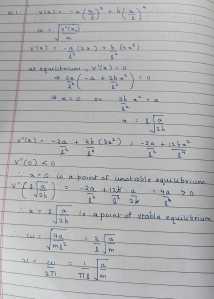 V(x) = -a(x/l)² + b(x/l)⁴
ω = √(V''(x₀)/m)
V'(x) = -a/l² (2x) + b/l⁴ (4x³)
at equilibrium, V'(x) = 0
⇒ 2x/l² (-a + 2bx²/l²) = 0
⇒ x = 0 or 2b/l² x² = a
x = l√(a/2b)
V''(x) = -2a/l² + 4b/l⁴ (3x²) = -2a/l² + 12bx²/l⁴
V''(0) < 0
∴ x = 0 is a point of unstable equilibrium
V''(l√(a/2b)) = -2a/l² + 12b/l² a/2b = 4a/l² > 0
∴ x = l√(a/2b) is a point of stable equilibrium
ω = √(4a/ml²) = 2/l √(a/m)
ν = ω/2π = 1/πl √(a/m)